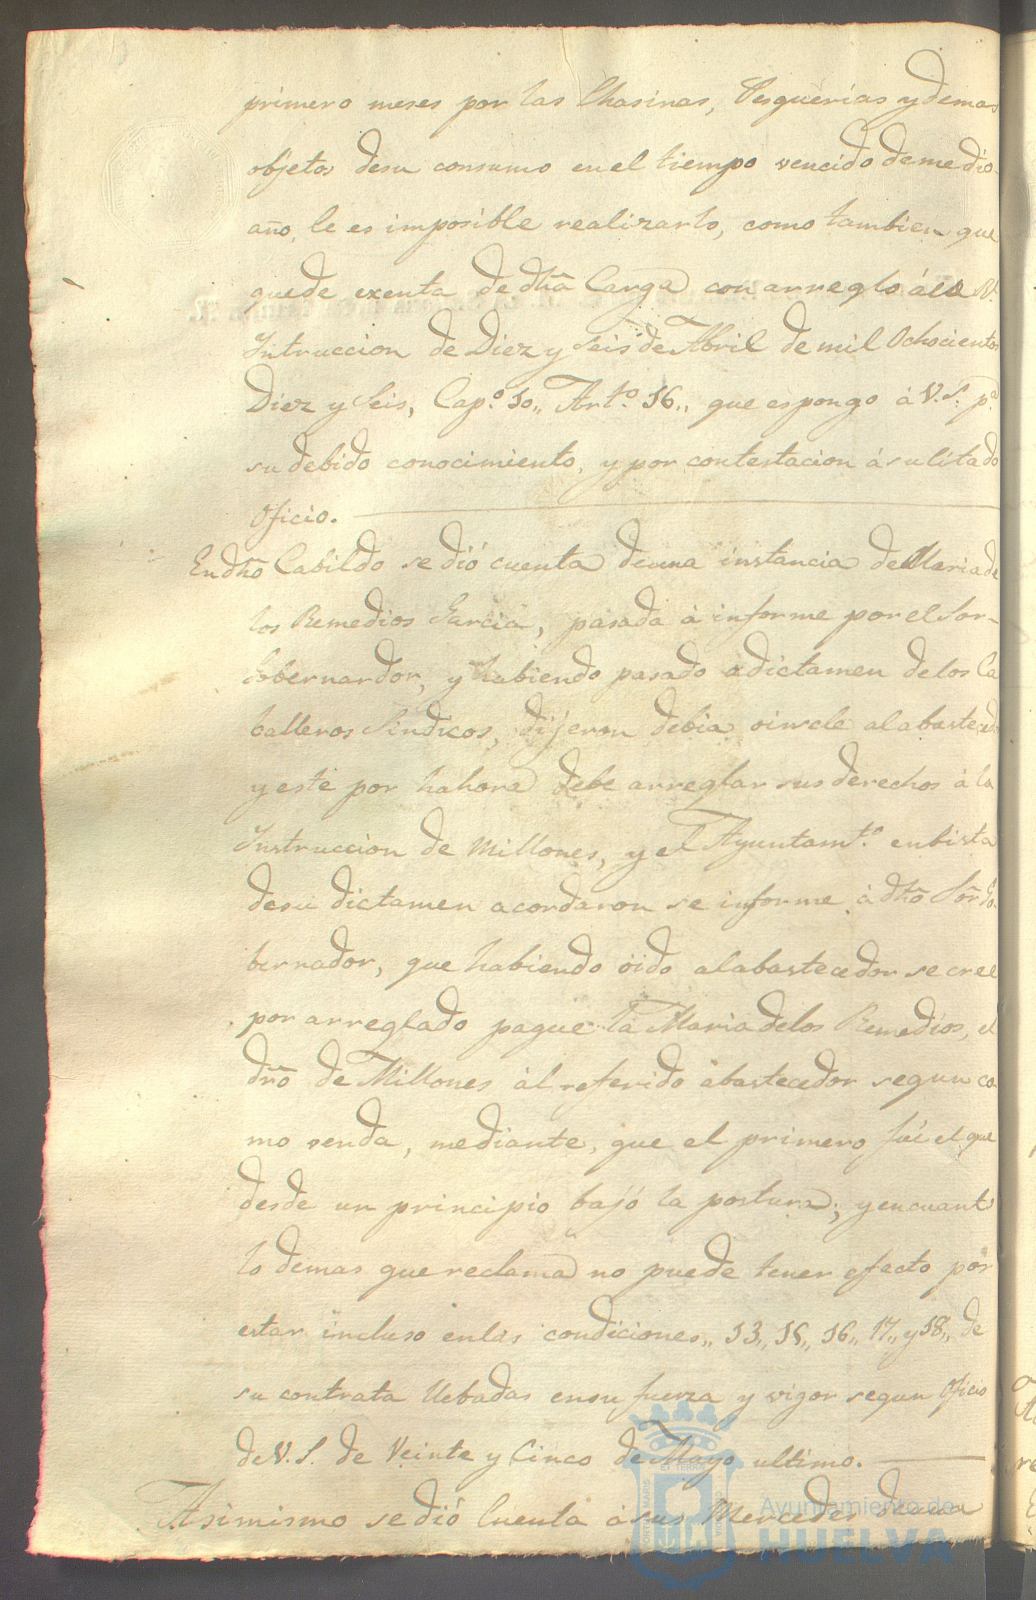 primero meses por las Chasinas, Pesquerias y demas
objetos desu consumo en el tiempo vencido de medio
año, le es imposible realizarlo, como tambien que
quede exenta de dha Carga con arreglo á la Rl
Yntruccion de Diez y Seis de Abril de mil Ochocientos
Diez y Seis, Capº 10,, Artº 16,, que espongo á V.S. pª
su debido conocimiento, y por contestacion á su litado
oficio.
En dho Cabildo se dió cuenta deuna instancia de Maria de
los Remedios Garcia, pasada á informe por el Sor
Gobernardor, y habiendo pasado a dictamen de los Ca
balleros Sindicos, dijeron debia oirsele al abasteced
y este por hahora debe arreglar sus derechos á la
Ynstruccion de Millones, y el Ayuntamtº en bista
desu dictamen acordaron se informe á dho Sor Go
bernador, que habiendo óido al abastecedor se cree
por arreglado pague la Maria delos Remedios, el
dro de Millones al referido abastecedor segun co
mo venda, mediante, que el primero fué el que
desde un principio bajó la postura; y en cuant
lo demas que reclama no puede tener efecto por
estar incluso en las condiciones,, 13,, 15,, 16,, 17,, y 18,, de
su contrata llebadas ensu fuerza y vigor segun oficio
de V.S. de Veinte y Cinco de Mayo ultimo.
Asimismo se dió Cuenta á sus Mercedes deuna
Ayuntamiento de
HUELVA